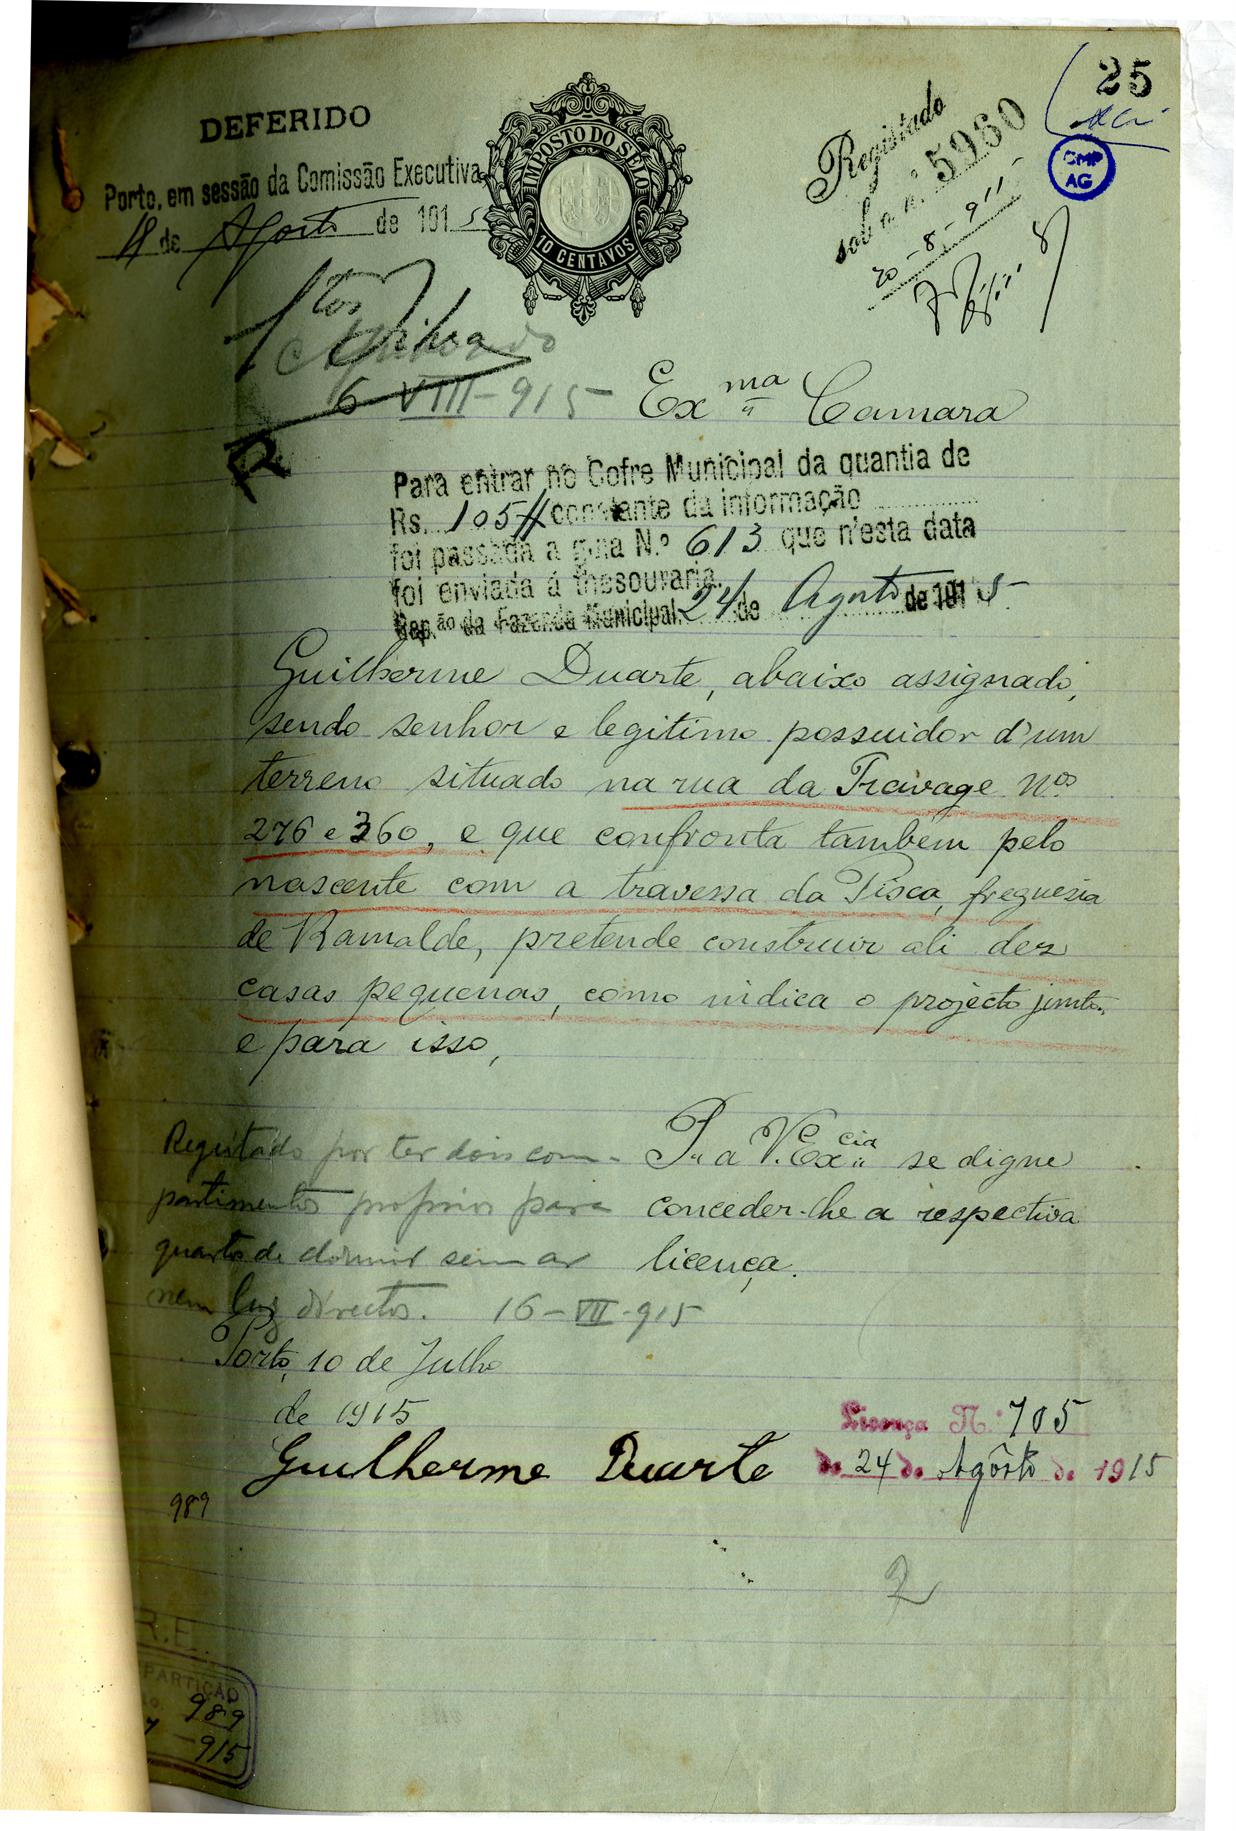 25
DEFERIDO
Porto, em sessão da Comissão Executiva
18 de Agosto de 1915
IMPOSTO DO SELO
10 CENTAVOS
Registado
sob o n.º 5960
20-8-915
CMP
AG
Aprovado
6-VIII-915
Exma Camara
Para entrar no Cofre Municipal da quantia de
Rs. 105$ constante da informação
foi passada a guia N.º 613 que n'esta data
foi enviada á thesouraria.
Rep.ão da Fazenda Municipal, 24 de Agosto de 1915
Guilherme Duarte, abaixo assignado,
sendo senhor e legitimo possuidor d'um
terreno situado na rua da Travage Nos
276 e 360, e que confronta tambem pelo
nascente com a travessa da Prisca, freguesia
de Ramalde, pretende construir ali dez
casas pequenas, como indica o projecto junto,
e para isso,
P. a V. Excia se digne
conceder-lhe a respectiva
licença.
Regeitado por ter dois com-
partimentos proprios para
quarto de dormir sem ar
nem luz directos. 16-VII-915
Porto, 10 de Julho
de 1915
Guilherme Duarte
Licença N.º 705
de 24 de Agôsto de 1915
989
2
R.E.
PARTIÇÃO
989
7-915